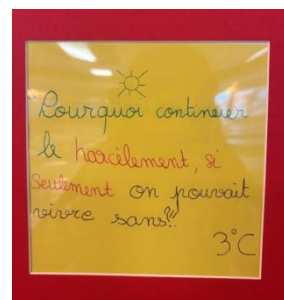 "Pourquoi continuer
le harcèlement, si
seulement on pouvait
vivre sans?!"
3°C